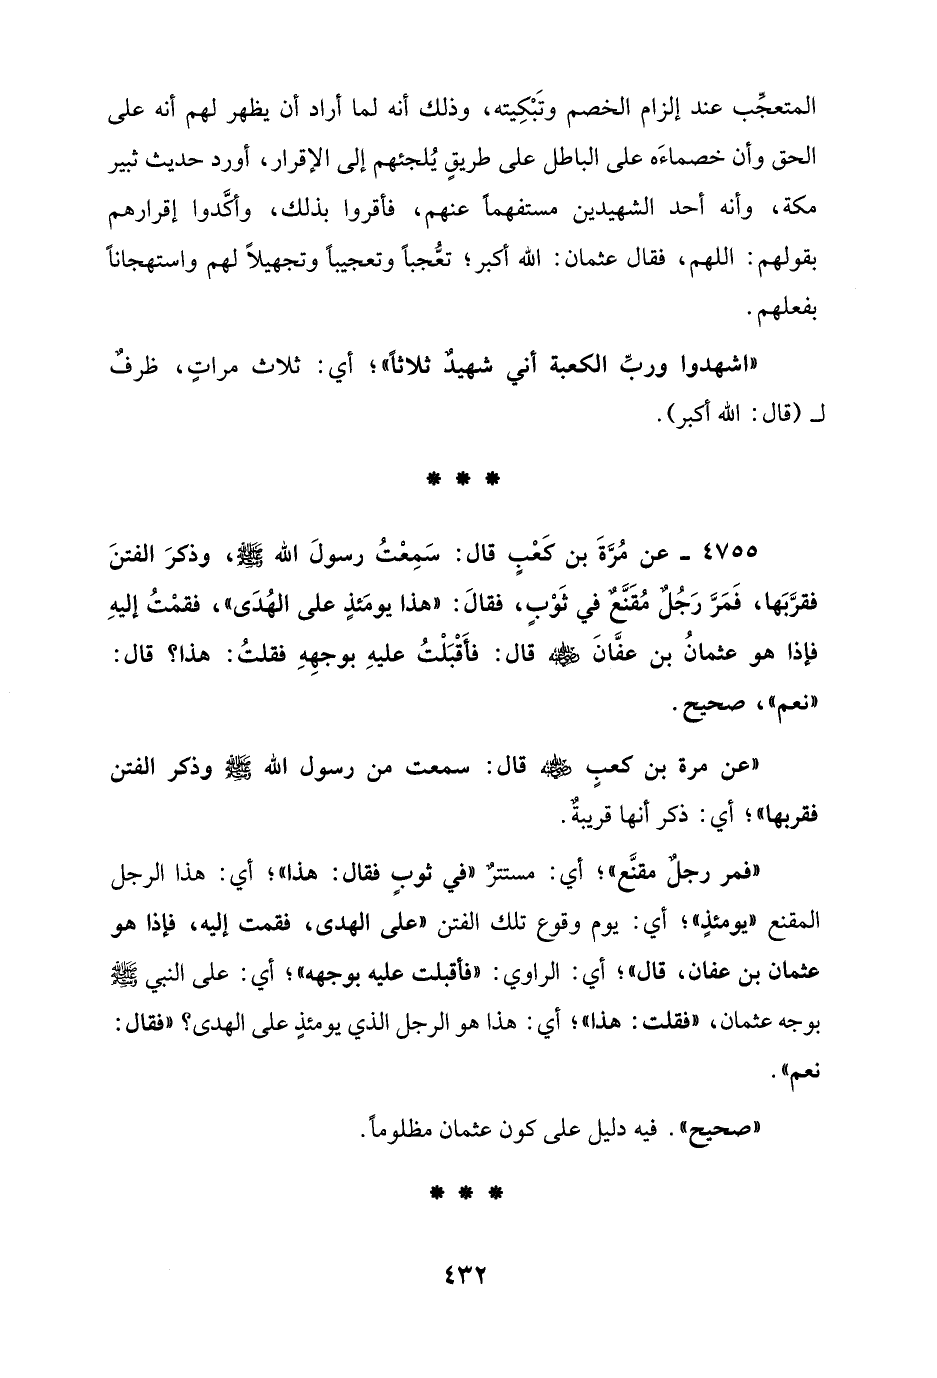 المتعجِّب عند إلزام الخصم وتَبْكِيته، وذلك أنه لما أراد أن يظهر لهم أنه على
الحق وأن خصماءَه على الباطل على طريقٍ يُلجئهم إلى الإقرار، أورد حديث ثبير
مكة، وأنه أحد الشهيدين مستفهماً عنهم، فأقروا بذلك، وأكَّدوا إقرارهم
بقولهم: اللهم، فقال عثمان: الله أكبر؛ تعُّجباً وتعجيباً وتجهيلاً لهم واستهجاناً
بفعلهم.
«اشهدوا وربِّ الكعبة أني شهيدٌ ثلاثاً»؛ أي: ثلاث مراتٍ، ظرفٌ
لـ (قال: الله أكبر).
* * *
٤٧٥٥ ـ عن مُرَّةَ بن كَعْبٍ قال: سَمِعْتُ رسولَ الله ﷺ، وذكرَ الفتنَ
فقرَّبَها، فَمَرَّ رَجُلٌ مُقَنَّعٌ في ثَوْبٍ، فقالَ: «هذا يومَئذٍ على الهُدَى»، فقمْتُ إليهِ
فإذا هو عثمانُ بن عفَّانَ ﵁ قال: فأَقْبَلْتُ عليهِ بوجهِهِ فقلتُ: هذا؟ قال:
«نعم»، صحيح.
«عن مرة بن كعبٍ ﵁ قال: سمعت من رسول الله ﷺ وذكر الفتن
فقربها»؛ أي: ذكر أنها قريبةٌ.
«فمر رجلٌ مقنَّع»؛ أي: مستترٌ «في ثوبٍ فقال: هذا»؛ أي: هذا الرجل
المقنع «يومئذٍ»؛ أي: يوم وقوع تلك الفتن «على الهدى، فقمت إليه، فإذا هو
عثمان بن عفان، قال»؛ أي: الراوي: «فأقبلت عليه بوجهه»؛ أي: على النبي ﷺ
بوجه عثمان، «فقلت: هذا»؛ أي: هذا هو الرجل الذي يومئذٍ على الهدى؟ «فقال:
نعم».
«صحيح». فيه دليل على كون عثمان مظلوماً.
* * *
٤٣٢